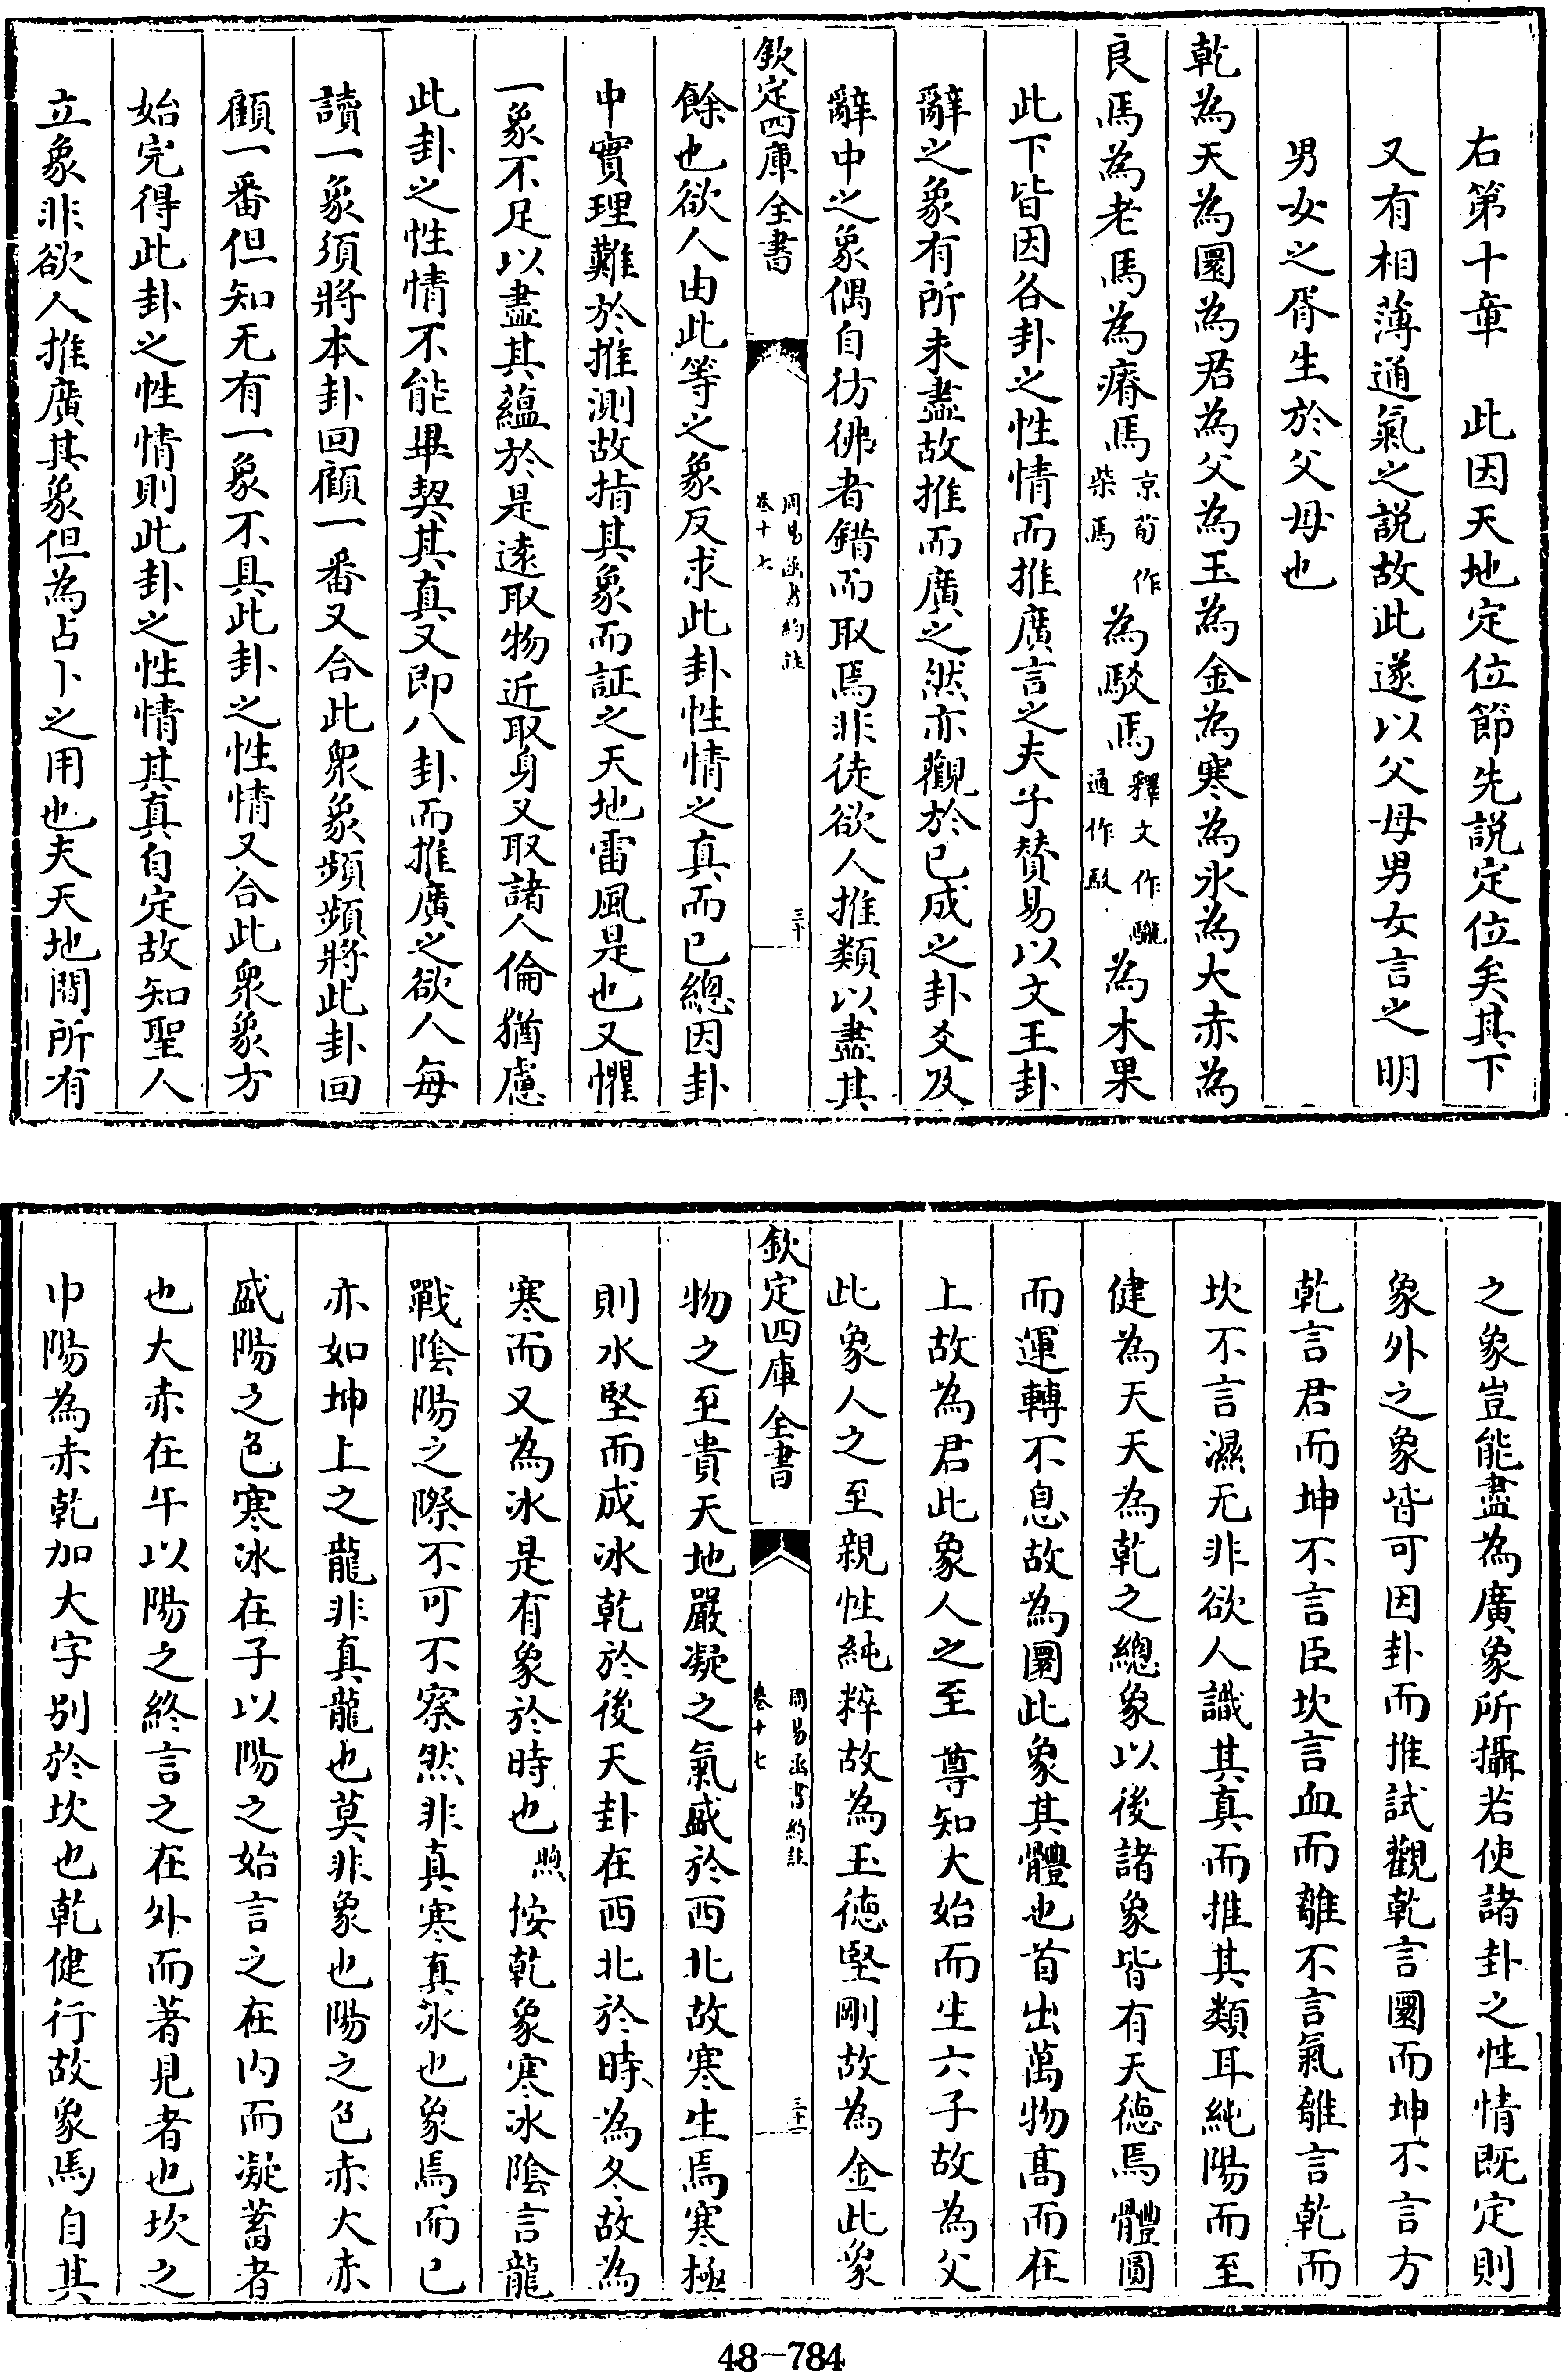 右第十章　此因天地定位節先説定位矣其下
又有相薄通氣之説故此遂以父母男女言之明
男女之胥生於父母也
乾為天為圜為君為父為玉為金為寒為氷為大赤為
良馬為老馬為瘠馬京荀作柴馬為駁馬釋文作驪通作駁為木果
此下皆因各卦之性情而推廣言之夫子賛易以文王卦
辭之象有所未盡故推而廣之然亦觀於已成之卦爻及
辭中之象偶自彷彿者錯而取焉非徒欲人推類以盡其
欽定四庫全書
周易函書約註
卷十七
三十
餘也欲人由此等之象反求此卦性情之真而已總因卦
中實理難於推測故指其象而証之天地雷風是也又懼
一象不足以盡其蘊於是遠取物近取身又取諸人倫猶慮
此卦之性情不能畢契其真又即八卦而推廣之欲人每
讀一象須將本卦回顧一番又合此衆象頻頻將此卦回
顧一番但知无有一象不具此卦之性情又合此衆象方
始完得此卦之性情則此卦之性情其真自定故知聖人
立象非欲人推廣其象但為占卜之用也夫天地間所有
之象豈能盡為廣象所攝若使諸卦之性情既定則
象外之象皆可因卦而推試觀乾言圜而坤不言方
乾言君而坤不言臣坎言血而離不言氣離言乾而
坎不言濕无非欲人識其真而推其類耳純陽而至
健為天天為乾之總象以後諸象皆有天德焉體圓
而運轉不息故為圜此象其體也首出萬物髙而在
上故為君此象人之至尊知大始而生六子故為父
此象人之至親性純粹故為玉德堅剛故為金此象
欽定四庫全書
周易函書約註
卷十七
三十一
物之至貴天地嚴凝之氣盛於西北故寒生焉寒極
則水堅而成冰乾於後天卦在西北於時為冬故為
寒而又為冰是有象於時也煦按乾象寒冰陰言龍
戰陰陽之際不可不察然非真寒真冰也象焉而已
亦如坤上之龍非真龍也莫非象也陽之色赤大赤
盛陽之色寒冰在子以陽之始言之在内而凝蓄者
也大赤在午以陽之終言之在外而著見者也坎之
中陽為赤乾加大字别於坎也乾健行故象馬自其
48-784